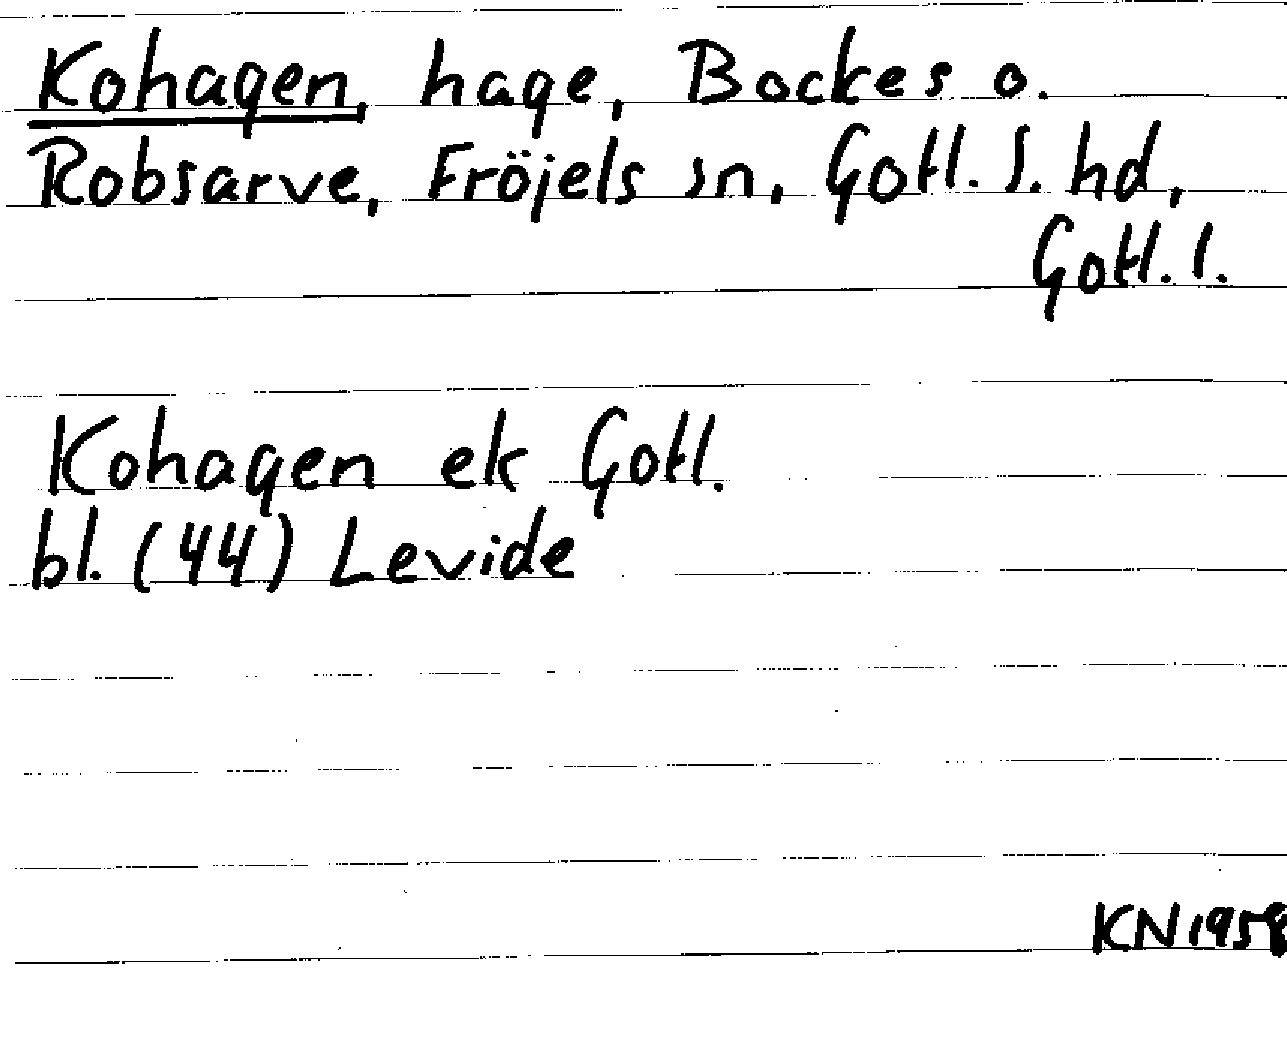 Kohagen, hage, Bockes o.
Robsarve, Fröjels sn, Gotl. S. hd,
Gotl. l.
Kohagen ek Gotl.
bl. (44) Levide
KN 1958